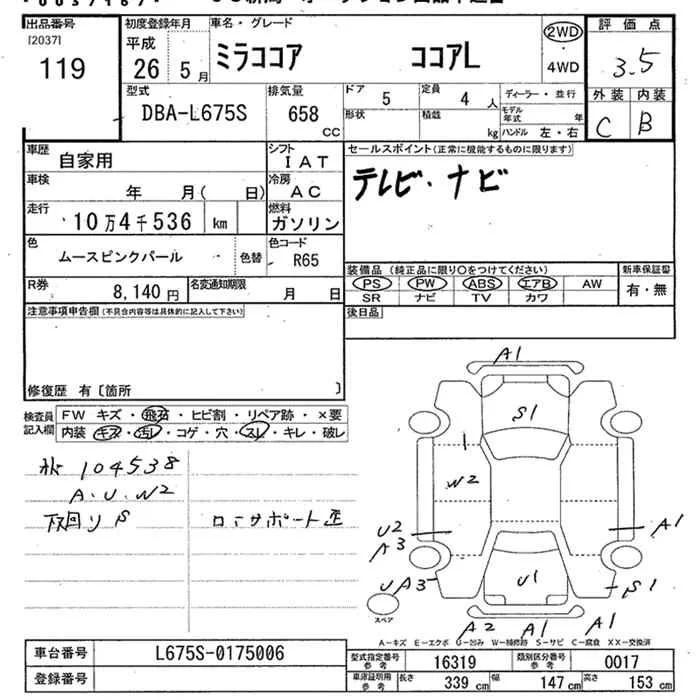 出品番号
[2037]
119
初度登録年月
平成
26 5 月
車名・グレード
ミラココア ココアL
2WD
・
4WD
評価点
3.5
外装 内装
C B
型式
DBA-L675S
排気量
658
CC
ドア
5
定員
4 人
形状
積載
kg
ディーラー・並行
モデル年式 年
ハンドル 左・右
車歴
自家用
シフト
IAT
セールスポイント(正常に機能するものに限ります)
テレビ・ナビ
車検
年 月( 日)
冷房
AC
走行
10万4千536 km
燃料
ガソリン
色
ムースピンクパール
色替
色コード
R65
装備品 (純正品に限り○をつけてください)
PS PW ABS エアB AW
SR ナビ TV カワ
新車保証書
有・無
R券
8,140円
名変通知期限
月 日
後日品
注意事項申告欄(不具合内容等は具体的に記入して下さい)
修復歴 有〔箇所 〕
検査員
記入欄
FW キズ・飛石・ヒビ割・リペア跡・×要
内装 キズ・汚レ・コゲ・穴・スレ・キレ・破レ
104538
A・U・W2
下回り S
コアサポート歪
A1
S1
1
W2
U2
A3
A1
U A3
U1
S1
A2 A1 A1
スペア
A-キズ E-エクボ U-凹み W-補修跡 S-サビ C-腐食 XX-交換済
車台番号
L675S-0175006
登録番号
型式指定番号
参考
16319
類別区分番号
参考
0017
車庫証明用
参考
長さ
339 cm
幅
147 cm
高さ
153 cm